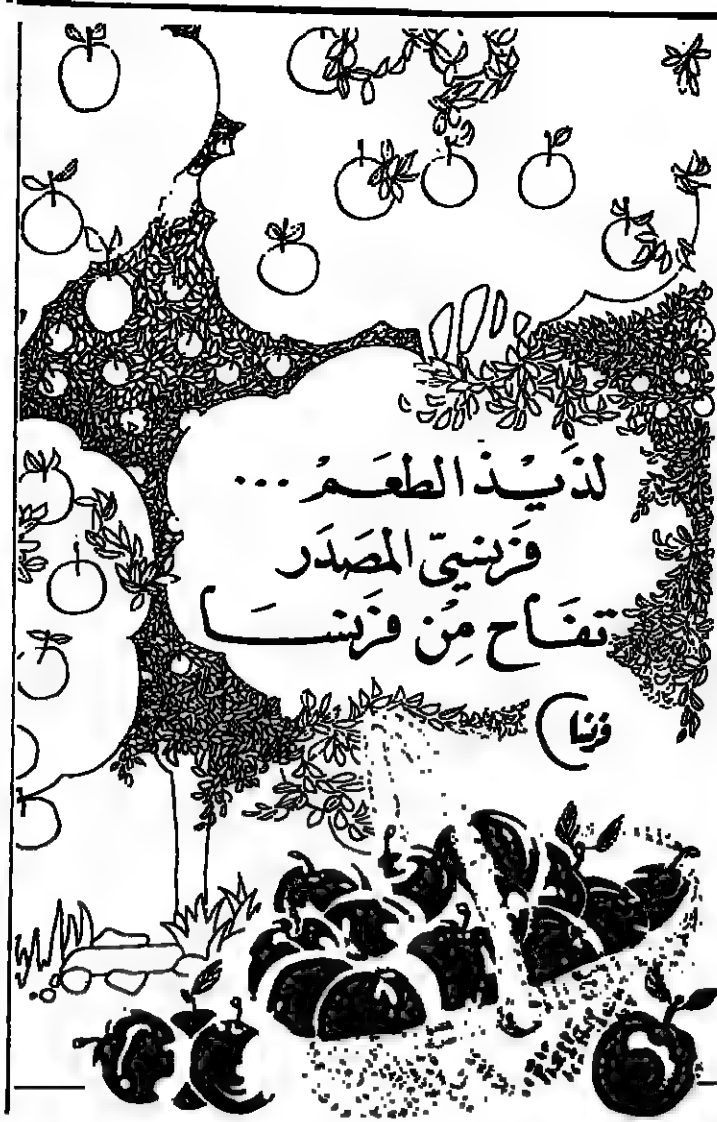 لذيذ الطعم ...
فرنسيّ المصدر
تفاح من فرنسا
فرنسا